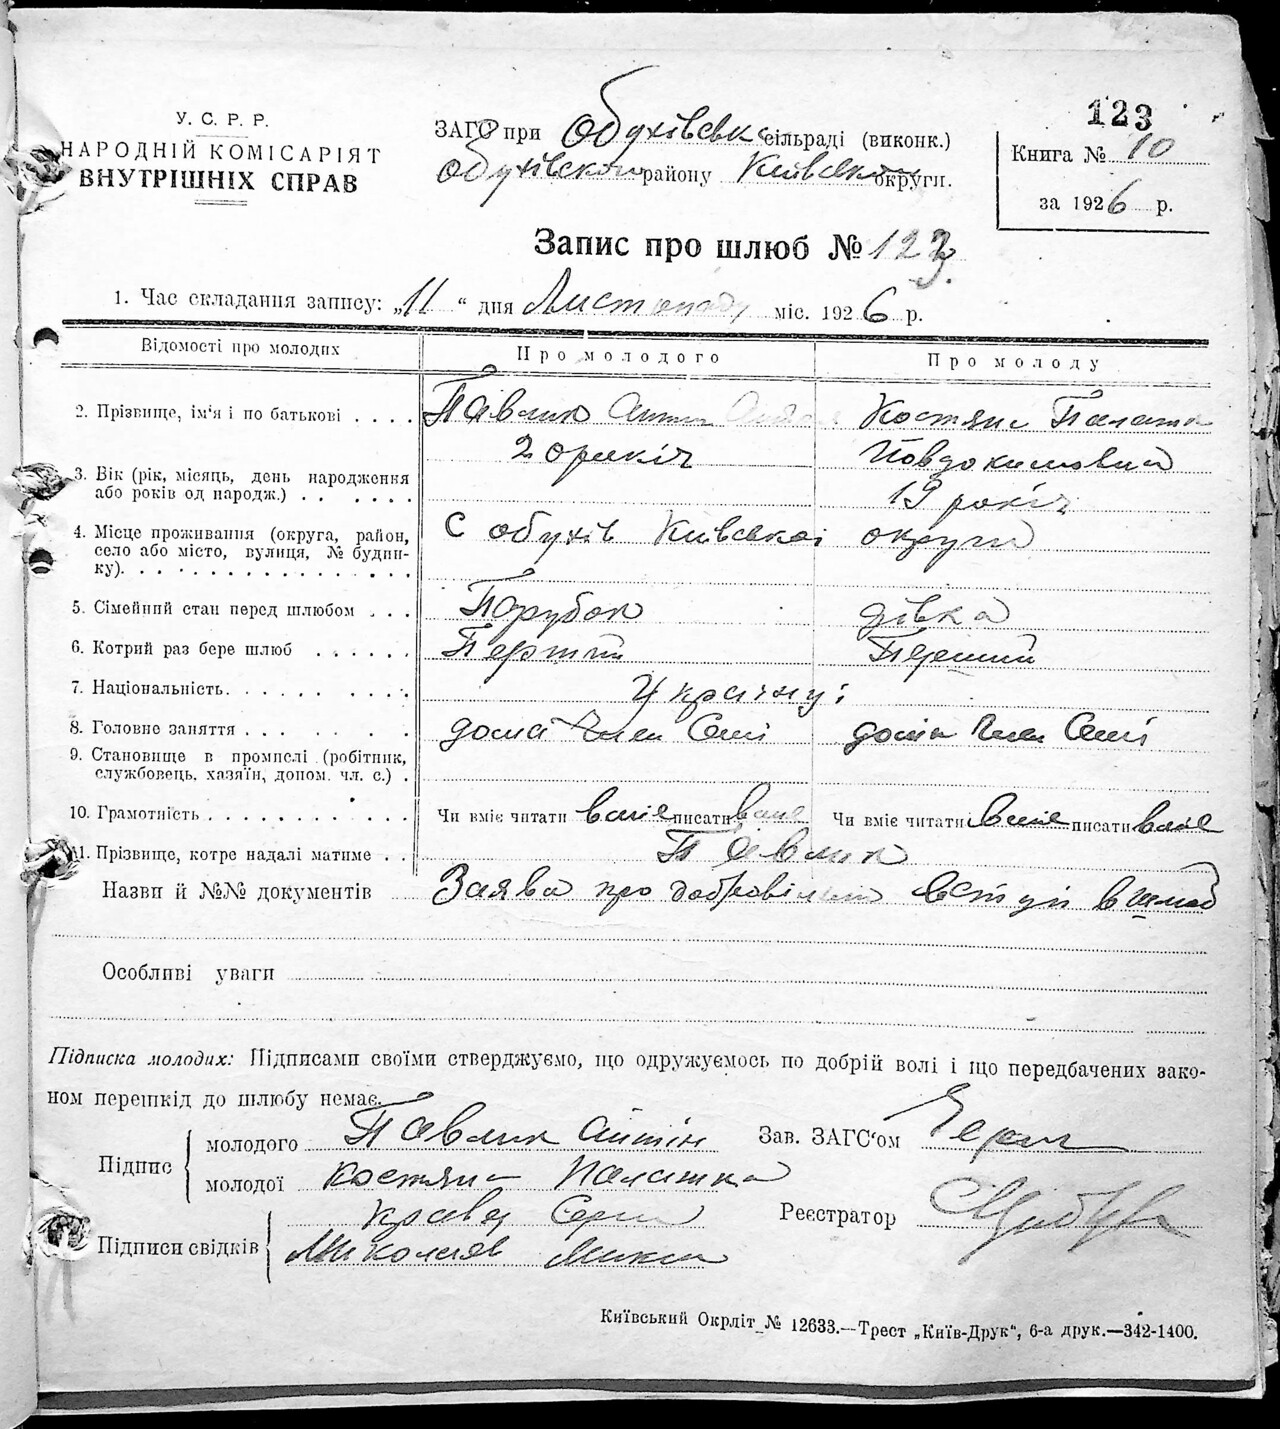 123
У. С. Р. Р.
НАРОДНІЙ КОМІСАРІЯТ
ВНУТРІШНІХ СПРАВ
ЗАГС при Обухівськ сільраді (виконк.)
Обухівского району Київської округи.
Книга № 10
за 1926 р.
Запис про шлюб № 123
1. Час складання запису: „11“ дня Листопаду міс. 1926 р.
Відомості про молодих
Про молодого
Про молоду
2. Прізвище, ім'я і по батькові
Павлик Антін
Костяни Палашка
Йовдокимовна
3. Вік (рік, місяць, день народження
або років од народж.)
20 років
19 років
4. Місце проживання (округа, район,
село або місто, вулиця, № будин-
ку).
С Обухів Київської округи
5. Сімейний стан перед шлюбом
Парубок
дівка
6. Котрий раз бере шлюб
Перший
Перший
7. Національність.
Українці
8. Головне заняття
дома Член Семї
дома Член Семї
9. Становище в промислі (робітник,
службовець, хазяїн, допом. чл. с.)
10. Грамотність
Чи вміє читати вміє писати вміє
Чи вміє читати вміє писати вміє
11. Прізвище, котре надалі матиме
Павлик
Назви й №№ документів
Заява про добровільний вступ в шлюб
Особливі уваги
Підписка молодих: Підписами своїми стверджуємо, що одружуємось по добрій волі і що передбачених зако-
ном перешкід до шлюбу немає.
Підпис
молодого Павлик Антін
молодої Костяна Палашка
Зав. ЗАГС'ом
Підписи свідків
Кравец
Миколаєв
Реєстратор
Київський Окрліт № 12633.—Трест „Київ-Друк“, 6-а друк.—342-1400.